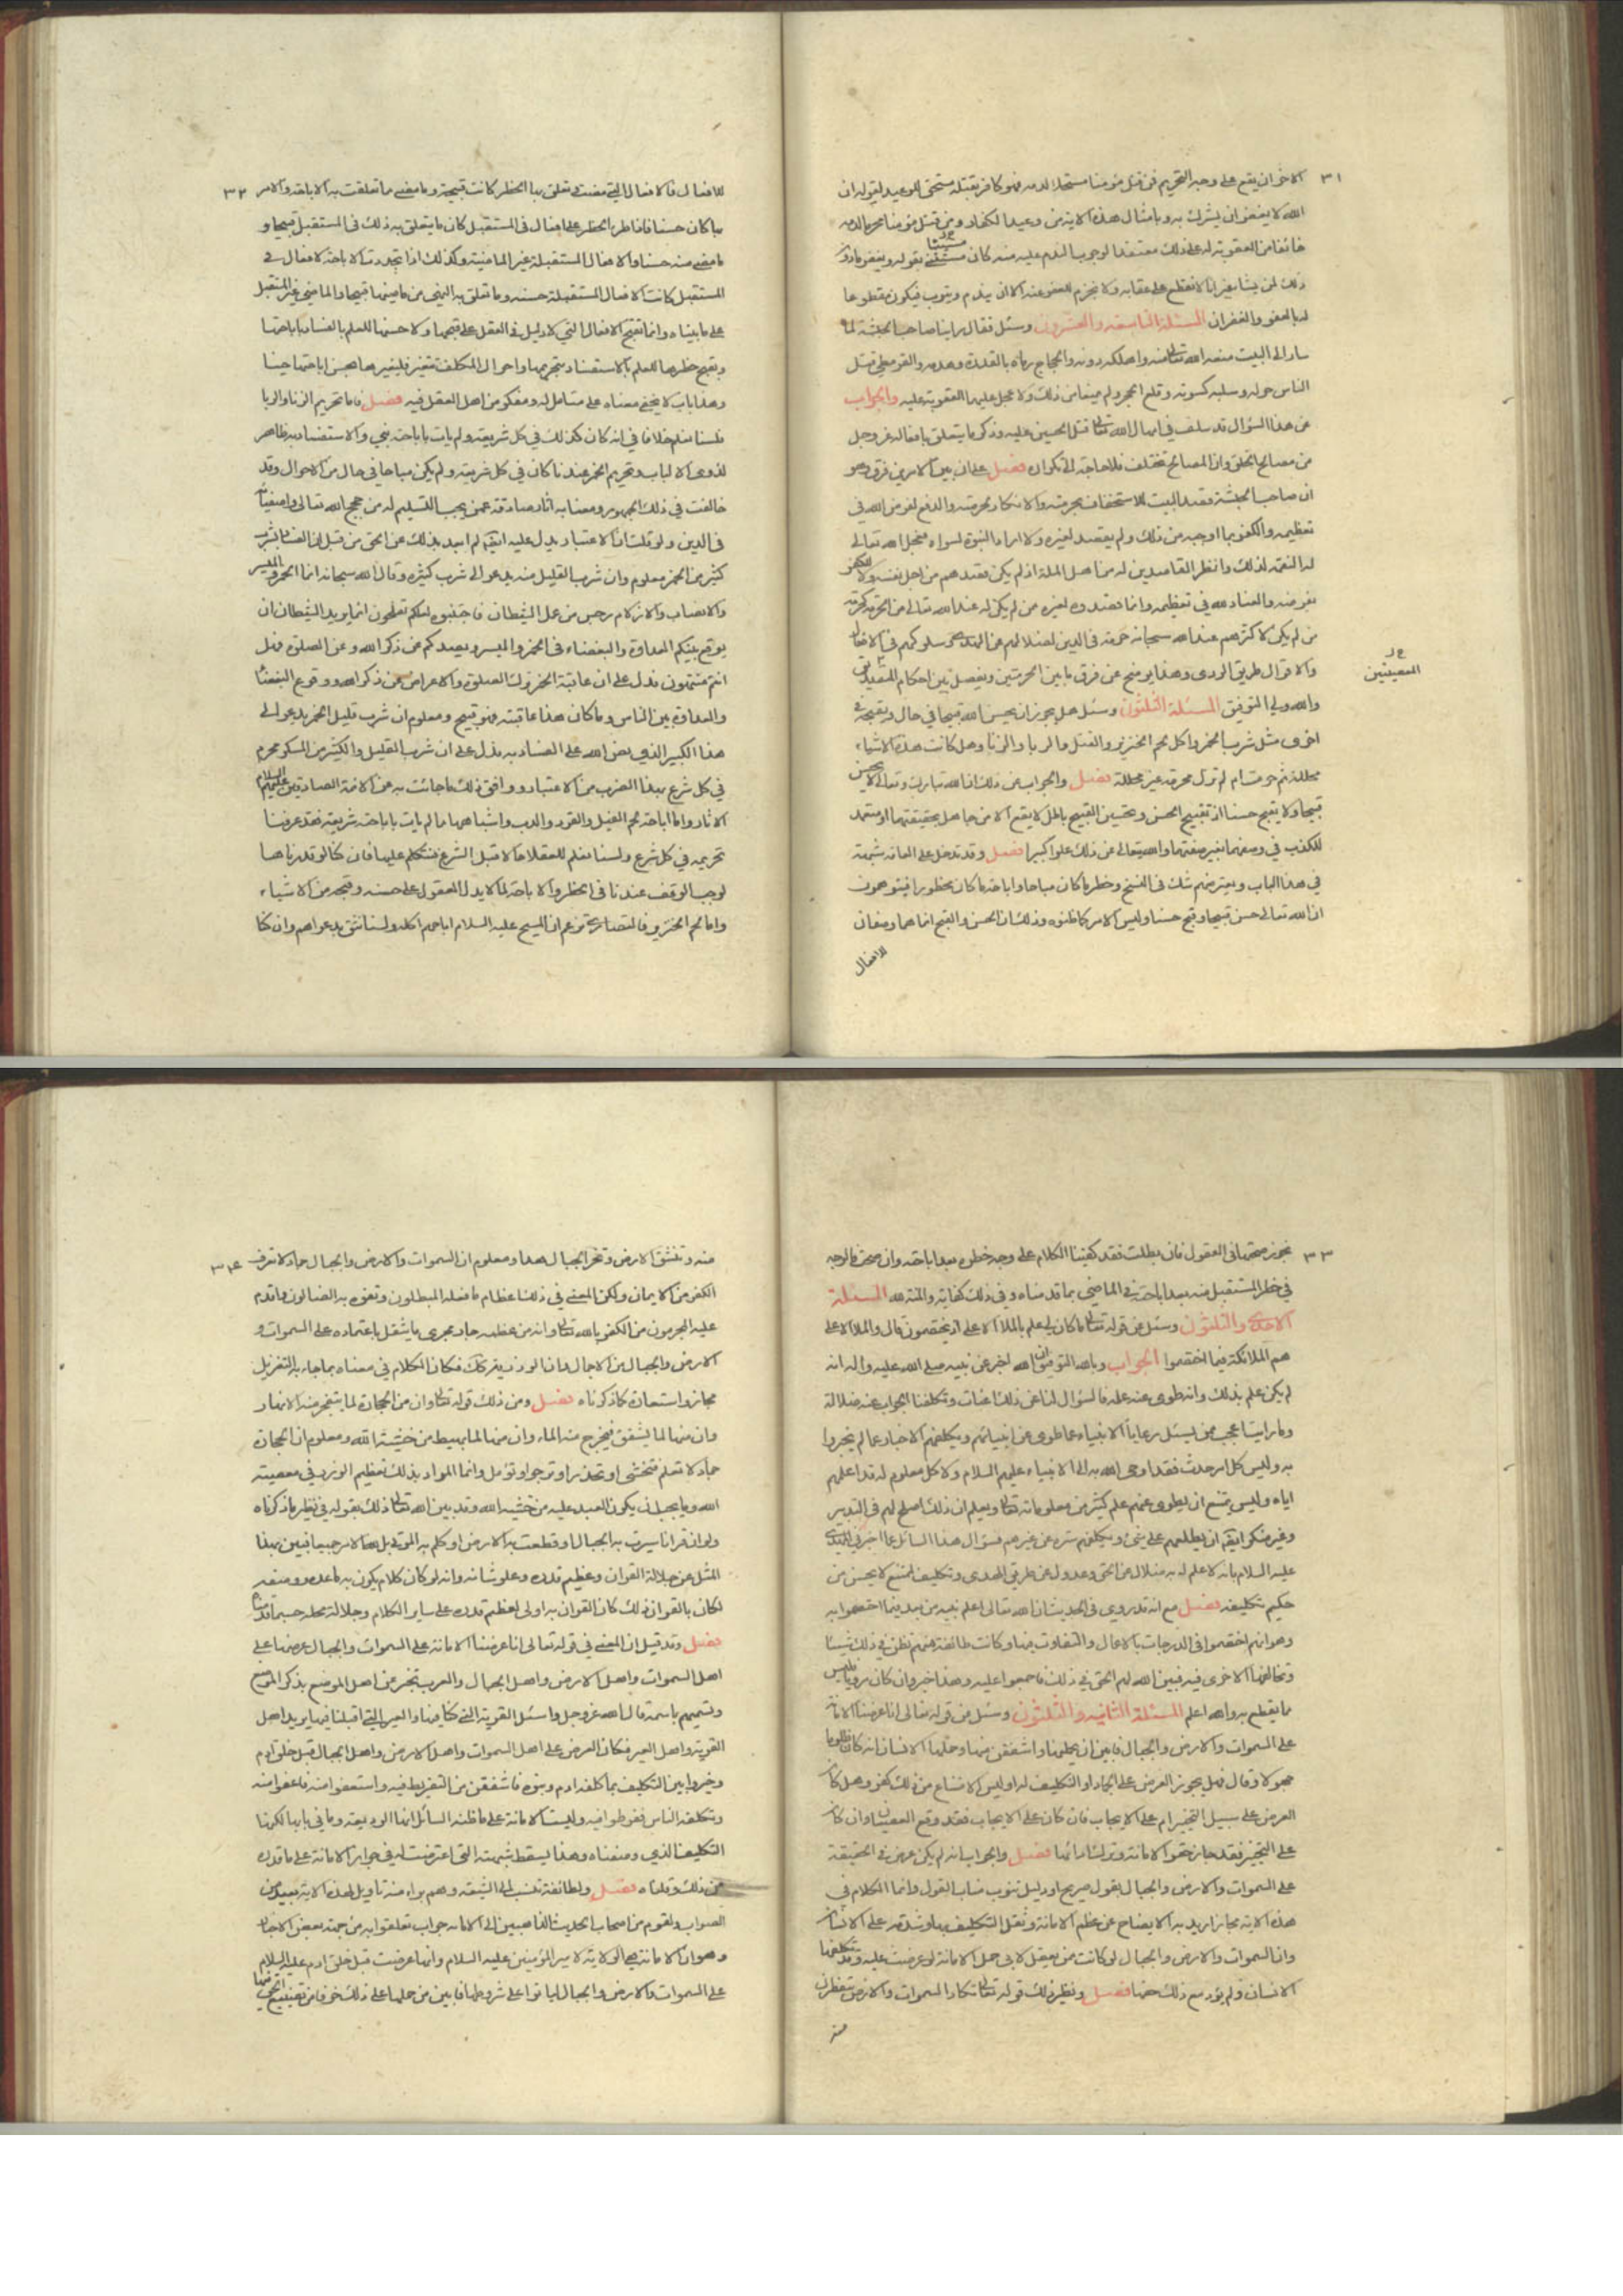 ٣١
الاخر ان يقع على وجه التحريم فمن قتل مؤمنا مستحلا لدمه فهو كافر بقتله مستحق الوعيد لقوله ان
الله لا يغفر ان يشرك به وبامثال هذه الاية من وعيد الكفار ومن قتل مؤمنا محرما لدمه
خائفا من العقوبة له على ذلك معتقدا لوجوب الندم عليه منه كان مستثنى بقوله ويغفر ما دون
ذلك لمن يشاء غير انا لا نقطع على عقابه ولا نجزم للعفو عنه الا ان يندم ويتوب فيكون مقطوعا
له بالعفو والغفران المسئلة التاسعة والعشرون وسئل فقال راينا صاحب الحبشة لما
سار الى البيت منعه الله تعالى منه واهلكه دونه والحجاج رماه بالقذرة وهدمه والقرمطي قتل
الناس حوله وسلبه كسوته وقلع الحجر ولم يمنعا من ذلك ولا عجل عليهما العقوبة عليه والجواب
عن هذا السؤال قد سلف في امهال الله تعالى قتل الحسين عليه وذكر ما يتعلق بافعاله عز وجل
من مصالح الخلق وان المصالح تختلف فلا حاجة الى تكراره فصل على ان بين الامرين فرق وهو
ان صاحب الحبشة قصد البيت للاستخفاف بحرمته والانكار لحرمته والدفع لفرض الله في
تعظيمه والكفر بما اوجبه من ذلك ولم يقصد لغيره ولا ادعاء النبوة لسواه فعجل الله تعالى
له النقمة لذلك وانظر القاصدين له من اهل الملة اذ لم يكن قصدهم من اجل نفسه ولا للكفر
بفرضه والعناد لله في تعظيمه وانما قصدوه لغيره من لم يكن له عند الله تعالى من الحرمة كحرمة
من لم يكن لاكثرهم عند الله سبحانه حرمة في الدين لضلالهم عن الهدى سلوكهم في الافعال
والاقوال طريق الردى وهذا يوضح عن فرق ما بين الحرمتين ويفصل بين احكام المعصيتين
خ ل
المعصيتين
والله ولي التوفيق المسئلة الثلثون وسئل هل يجوز ان يحسن الله قبيحا في حال ويقبحه في
اخرى مثل شرب الخمر واكل لحم الخنزير والقتل والربا والزنا وهل كانت هذه الاشياء
محللة ثم حرمت ام لم تزل محرمة غير محللة فصل والجواب عن ذلك ان الله تبارك وتعالى لا يحسن
قبيحا ولا يقبح حسنا اذ تقبيح الحسن وتحسين القبيح باطل لا يقع الا من جاهل بحقيقتهما او متعمد
للكذب في وصفهما بغير صفتهما والله يتعالى عن ذلك علوا كبيرا فصل وقد تدخل على العامة شبهة
في هذا الباب ويعترضهم شك في النسخ وحظر ما كان مباحا واباحة ما كان محظورا فيتوهمون
ان الله تعالى حسن قبيحا وقبح حسنا وليس الامر كما ظنوه وذلك ان الحسن والقبح انما هما وصفان
للافعال
٣٢
للافعال فالافعال التي مضت في تعلق بها الحظر كانت قبيحة وما مضى ما تعلقت به الاباحة والامر
بها كان حسنا فاذا طرء الحظر على افعال في المستقبل كان ما يتعلق به ذلك في المستقبل قبيحا و
ما مضى منه حسنا والافعال المستقبلة غير الماضية وكذلك اذا تجددت الاباحة لافعال في
المستقبل كانت الافعال المستقبلة حسنة وما تعلق به النهي من ماضيها قبيحا والماضي غير المستقبل
على ما بيناه وانما تقبح الافعال التي لا دليل في العقل على قبحها ولا حسنها للعلم بالفساد باباحتها
ويقبح حظرها للعلم بالاستفساد بتحريمها واحوال المكلف تتغير فلتغيرها يحسن اباحتها حينا
وهذا باب لا يخفى معناه على متامل له ومفكر من اهل العقل فيه فصل فاما تحريم الزنا والربا
فلسنا نعلم خلافا في انه كان كذلك في كل شريعة ولم يات باباحته نبي والاستفساد به ظاهر
لذوي الالباب وتحريم الخمر عندنا كان في كل شريعة ولم يكن مباحا في حال من الاحوال وقد
خالفت في ذلك الجمهور ومعنا به اثار صادقة عمن يجب التسليم له من حجج الله تعالى واصفيائه
في الدين ولو قلت ان الاعتبار يدل عليه ايضا لم ابعد بذلك عن الحق من قبل ان الفساد بشرب
كثير من الخمر معلوم وان شرب القليل منه يدعو الى شرب كثيره وقال الله سبحانه انما الخمر والميسر
والانصاب والازلام رجس من عمل الشيطان فاجتنبوه لعلكم تفلحون انما يريد الشيطان ان
يوقع بينكم العداوة والبغضاء في الخمر والميسر ويصدكم عن ذكر الله وعن الصلوة فهل
انتم منتهون فدل على ان عاقبة الخمر ترك الصلوة والاعراض عن ذكر الله ووقوع البغضاء
والعداوة بين الناس وما كان هذا عاقبته فهو قبيح ومعلوم ان شرب قليل الخمر يدعو الى
هذا الكثير الذي نص الله على الفساد به فدل على ان شرب القليل والكثير من المسكر محرم
في كل شرع بهذا الضرب من الاعتبار ووافق ذلك ما جائت به عن الائمة الصادقين عليهم السلام
الاثار واما اباحة لحم الفيل والقرد والدب واشباهها ما لم يات باباحته شريعة فقد عرفنا
تحريمه في كل شرع ولسنا نعلم للعقلاء حالا قبل الشرع فنتكلم عليها فان كنا لو قدرناها
لوجب الوقف عندنا في الحظر والاباحة لما لا يدل العقول على حسنه وقبحه من الاشياء
واما لحم الخنزير فالنصارى تزعم ان المسيح عليه السلام اباحهم اكله ولسنا نثق بدعواهم وان كنا
٣٣
نجوز صحتها في العقول فان بطلت فقد كفينا الكلام على وجه حظره بعد اباحته وان صحت فالوجه
في حظر المستقبل منه بعد اباحته في الماضي بما قدمناه وفي ذلك كفاية والمنة لله المسئلة
الاحدى والثلثون وسئل عن قوله تعالى ما كان لي علم بالملا الاعلى اذ يختصمون قال والملا الاعلى
هم الملائكة فيما اختصموا الجواب وبالله التوفيق ان الله اخبر عن نبيه صلى الله عليه واله انه
لم يكن علم بذلك وانه طوى عنه علمه فالسؤال لنا عن ذلك اعنات وتكلفنا الجواب عنه ضلالة
وما راينا اعجب ممن يسئل رعايا الانبياء عما طوي عن انبيائهم ويكلفهم الاخبار عما لم يخبروا
به وليس كل امر حدث فقد اوحى الله به الى الانبياء عليهم السلام ولا كل معلوم له قد اعلمهم
اياه وليس يمتنع ان يطوي عنهم علم كثير من معلوماته تعالى ويعلم ان ذلك اصلح لهم في التدبير
وغير منكر ايضا ان يطلعهم على شيء ويكلفهم ستره عن غيرهم فسؤال هذا السائل عما اخبر نبي الهدى
عليه السلام بانه لا علم له به ضلال عن الحق وعدول عن طريق الهدى وتكليف لممتنع لا يحسن من
حكيم تكليفه فصل مع انه قد روي في الحديث ان الله تعالى اعلم نبيه من بعد فيما اختصموا به
وهو انهم اختصموا في الدرجات بالاعمال والتفاوت فيها وكانت طائفة منهم تظن في ذلك شيئا
وتخالفها الاخرى فيه فبين الله لهم الحق في ذلك فاجمعوا عليه وهذا خبر وان كان مرويا فليس
مما يقطع به والله اعلم المسئلة الثانية والثلثون وسئل عن قوله تعالى انا عرضنا الامانة
على السموات والارض والجبال فابين ان يحملنها واشفقن منها وحملها الانسان انه كان ظلوما
جهولا وقال فهل يجوز العرض على الجماد او التكليف له او ليس الامتناع من ذلك كفر وهل كان
العرض على سبيل التخيير ام على الايجاب فان كان على الايجاب فقد وقع العصيان وان كان
على التخيير فقد جاز حقر الامانة وترك ادائها فصل والجواب انه لم يكن عرض في الحقيقة
على السموات والارض والجبال بقول صريح او دليل ينوب مناب القول وانما الكلام في
هذه الاية مجاز اريد به الايضاح عن عظم الامانة وثقل التكليف بها وشدته على الانسان
وان السموات والارض والجبال لو كانت ممن يعقل لابى حمل الامانة لو عرضت عليه وقد تكلفها
الانسان ولم يؤد مع ذلك حقها فصل ونظير ذلك قوله تعالى تكاد السموات والارض يتفطرن
منه
٣٤
منه وتنشق الارض وتخر الجبال هدا ومعلوم ان السموات والارض والجبال جماد لا تعرف
الكفر من الايمان ولكن المعنى في ذلك اعظام ما فعله المبطلون وتفوه به الضالون واقدم
عليه المجرمون من الكفر بالله تعالى وانه من عظمه جار مجرى ما يثقل باعتماده على السموات و
الارض والجبال من الاحمال وان الوزر يقر كذلك فكان الكلام في معناه بما جاء به التنزيل
مجازا واستعارة كما ذكرناه فصل ومن ذلك قوله تعالى وان من الحجارة لما يتفجر منه الانهار
وان منها لما يشقق فيخرج منه الماء وان منها لما يهبط من خشية الله ومعلوم ان الحجارة
جماد لا تعلم فتخشى او تحذر او ترجو او تؤمل وانما المراد بذلك تعظيم الوزر في معصية
الله وما يجب ان يكون العبد عليه من خشية الله وقد بين الله تعالى ذلك بقوله في نظير ما ذكرناه
ولو ان قرانا سيرت به الجبال او قطعت به الارض او كلم به الموتى بل لله الامر جميعا فبين بهذا
المثل عن جلالة القران وعظيم قدره وعلو شانه وانه لو كان كلام يكون به ما عدده ووصفه
لكان بالقران ذلك كان القران به اولى لعظيم قدره على ساير الكلام وجلالة محله حسبما قدمناه
فصل وقد قيل ان المعنى في قوله تعالى انا عرضنا الامانة على السموات والجبال عرضها على
اهل السموات واهل الارض واهل الجبال والعرب تخبر عن اهل الموضع بذكر الموضع
وتسميهم باسمه قال الله عز وجل واسئل القرية التي كنا فيها والعير التي اقبلنا فيها يريد اهل
القرية واهل العير فكان العرض على اهل السموات واهل الارض واهل الجبال قبل خلق ادم
وخيروا بين التكليف بما كلفه ادم وبنوه فاشفقن من التفريط فيه واستعفوا منه فاعفوا منه
وتكلفه الناس ففرطوا فيه وليست الامانة على ما ظنه السائل انها الوديعة وما في بابها لكنها
التكليف الذي وصفناه وهذا يسقط شبهته التي اعترضت له في جواز الامانة على ما قدره
من ذلك وظناه فصل ولطائفة تنسب الى الشيعة وهم براء منه تاويل لهذه الاية بعيد من
الصواب ولقوم من اصحاب الحديث الذاهبين الى الامامة جواب تعلقوا به من جهة بعض الاخبار
وهو ان الامانة هي الولاية لامير المؤمنين عليه السلام وانها عرضت قبل خلق ادم عليه السلام
على السموات والارض والجبال لياتوا على شروطها فابين من حملها على ذلك خوفا من تضييع الحق فيها